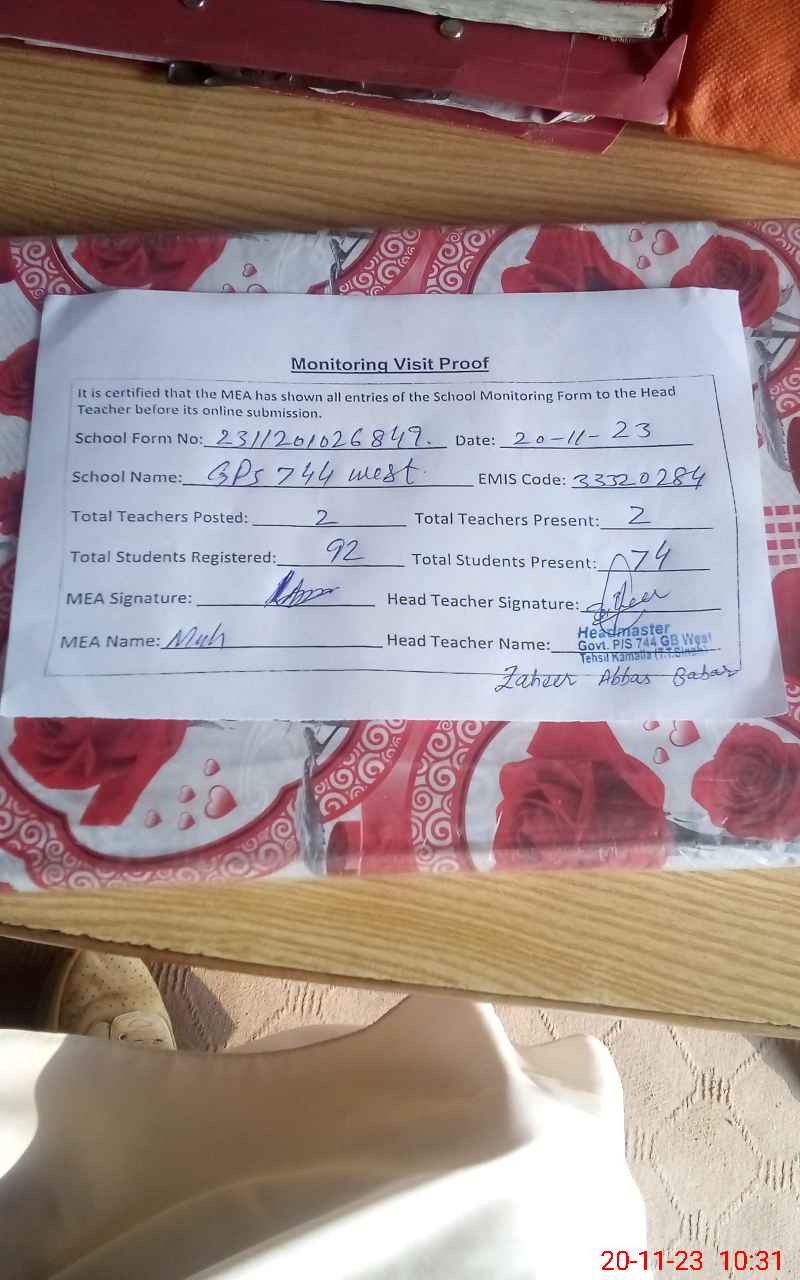 Monitoring Visit Proof
It is certified that the MEA has shown all entries of the School Monitoring Form to the Head
Teacher before its online submission.
School Form No: 2311201026849. Date: 20-11-23
School Name: GPS 744 west. EMIS Code: 33320284
Total Teachers Posted: 2 Total Teachers Present: 2
Total Students Registered: 92 Total Students Present: 74
MEA Signature: Head Teacher Signature:
MEA Name: Head Teacher Name:
Headmaster
Govt. P/S 744 GB West
Tehsil Kamalia (T.T.Singh)
Zaheer Abbas Babar
20-11-23 10:31